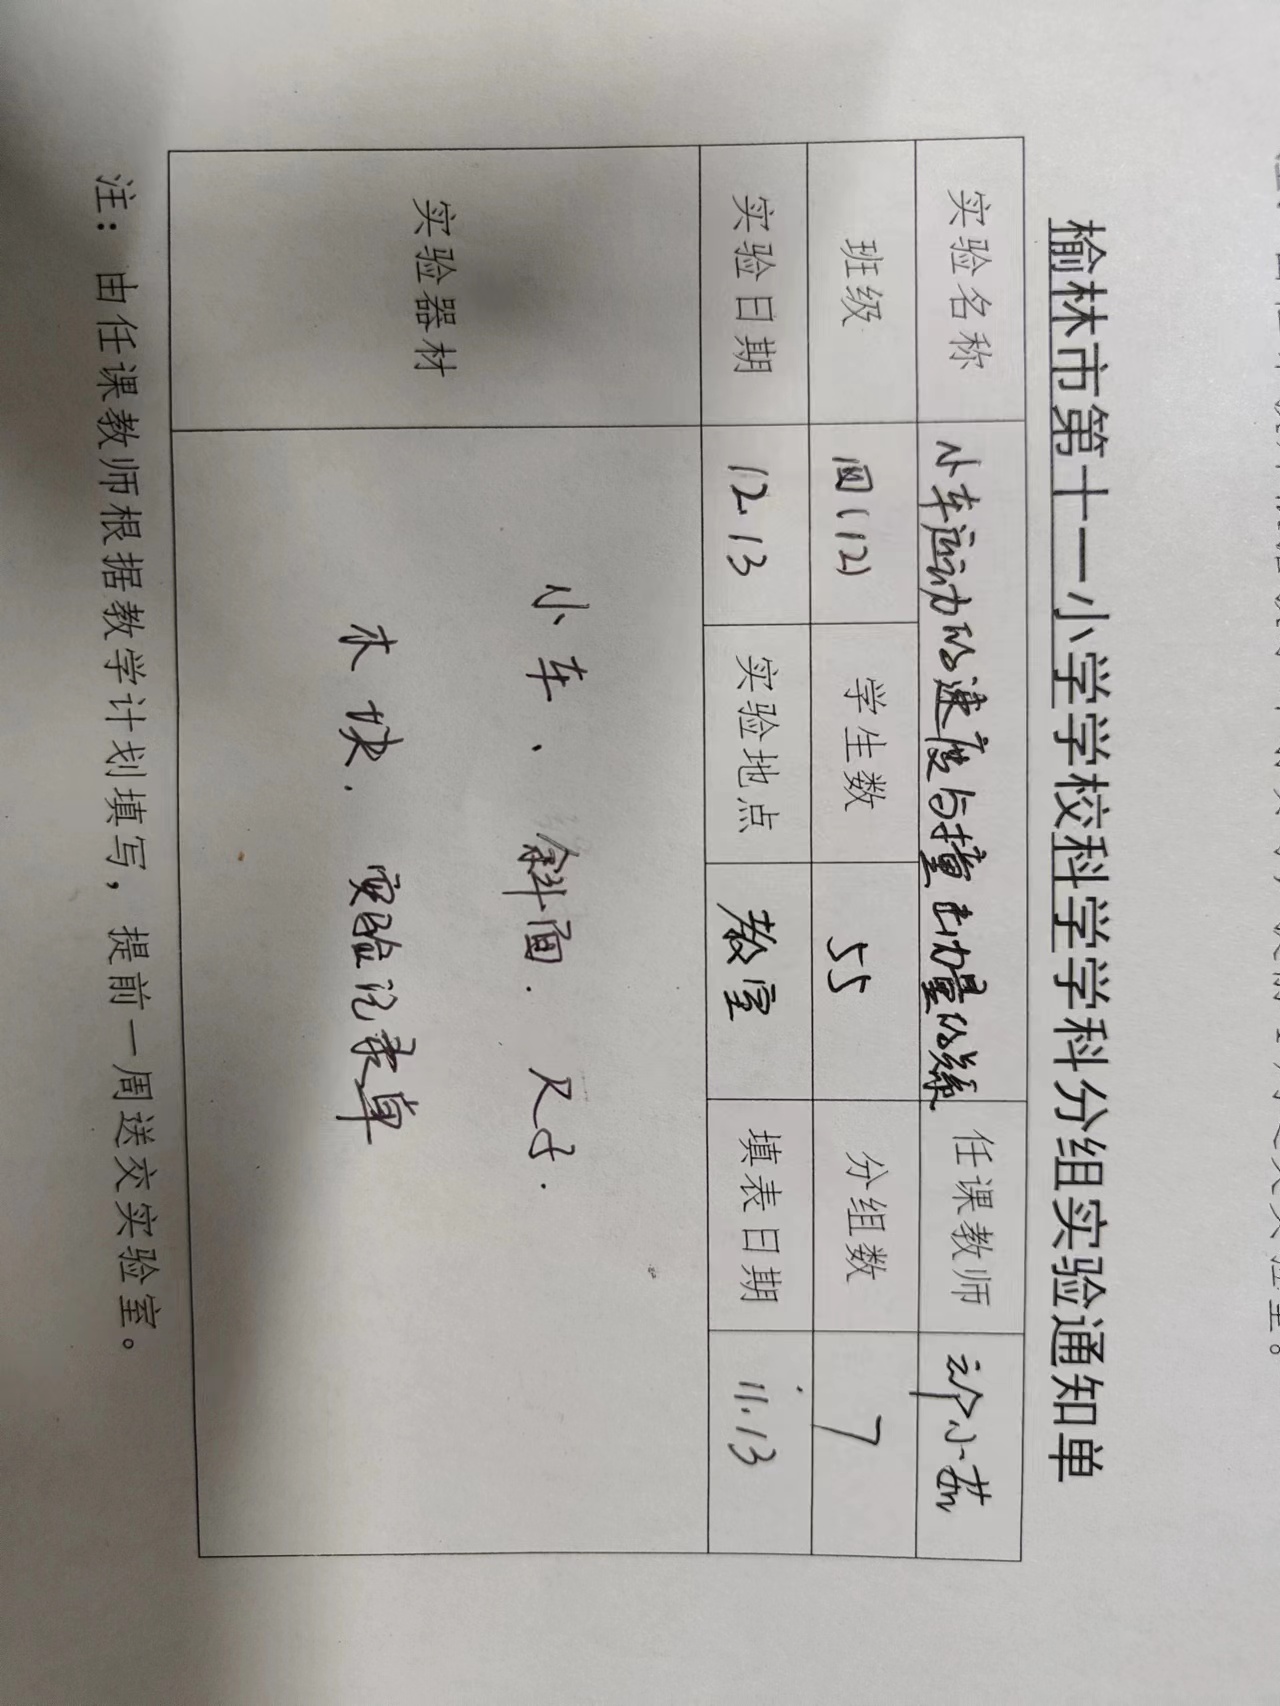 榆林市第十一小学学校科学学科分组实验通知单
实验名称 小车运动的速度与撞击力量的关系 任课教师
班级 四(12) 学生数 55 分组数 7
实验日期 12.13 实验地点 教室 填表日期 11.13
实验器材
小车、斜面.尺子.
木块.实验记录单
注：由任课教师根据教学计划填写，提前一周送交实验室。